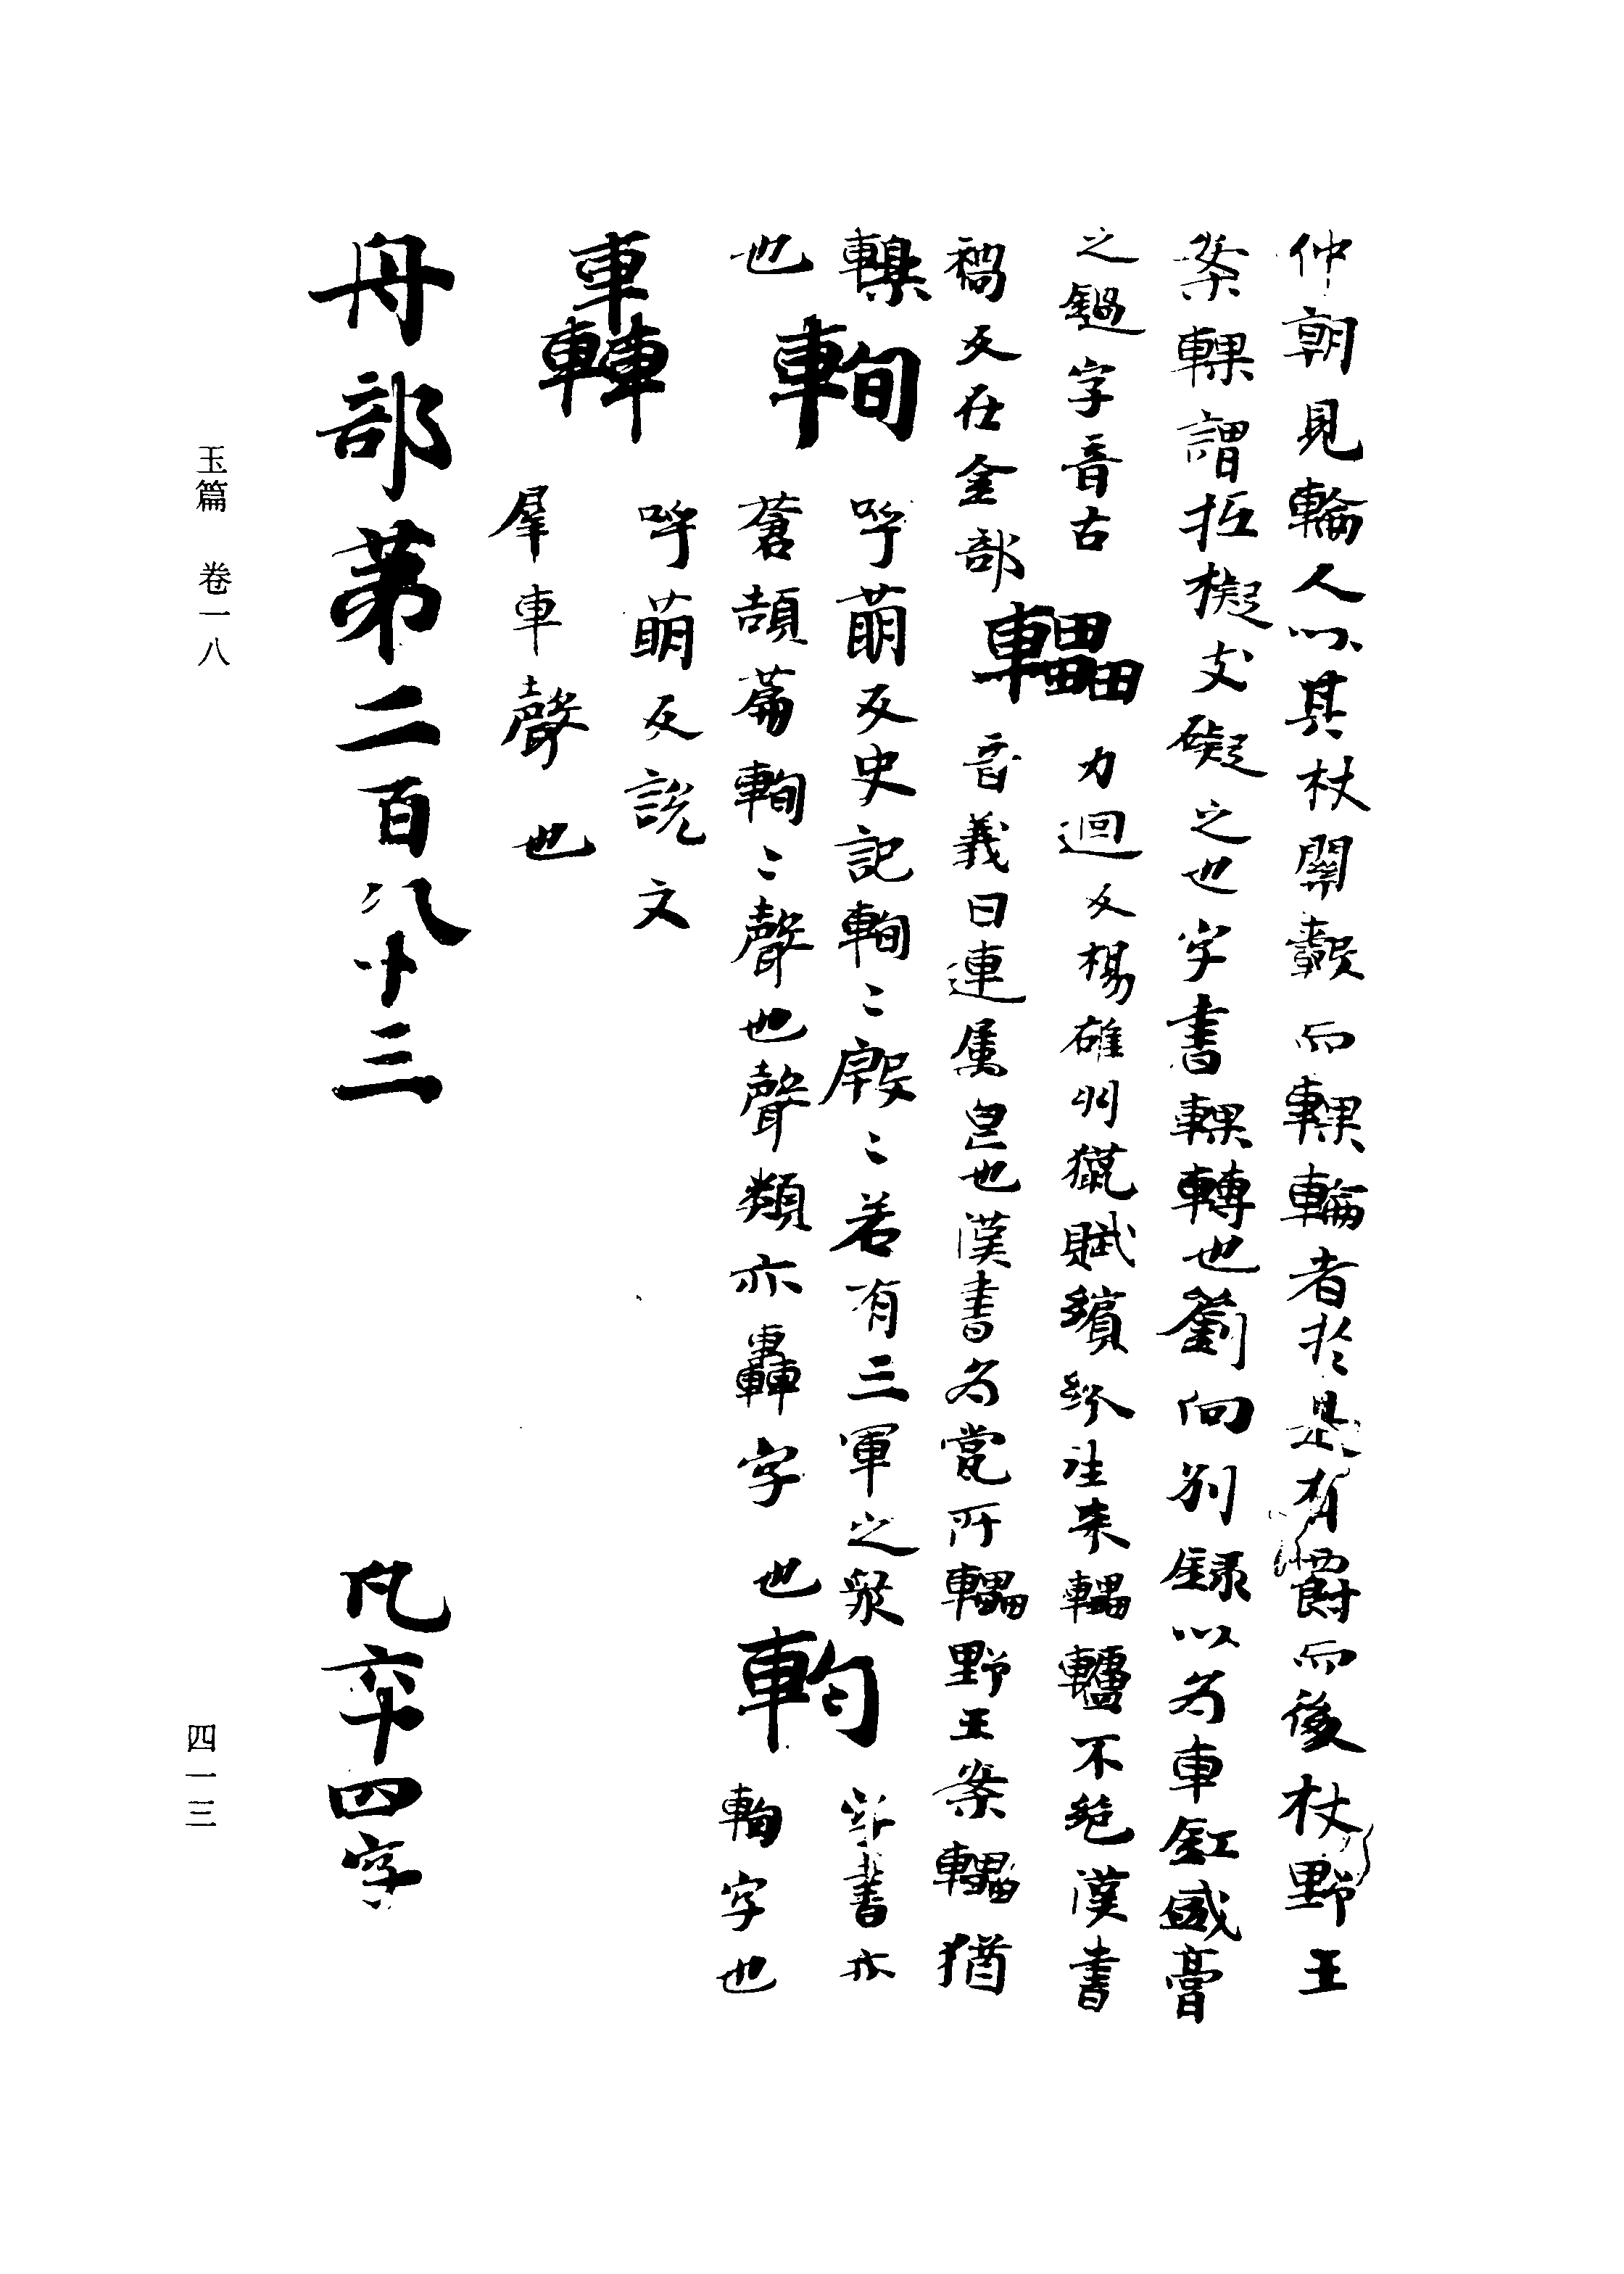 仲朝見輪人以其杖關轂而輠輪者於是有爵而後杖野王
案輠謂抵擬支礙之也字書輠轉也劉向別録以為車釭盛膏
之鍋字音古
禍反在金部
轠
力迴反楊雄羽獵賦繽紛往来轠轤不絶漢書
音義曰連属皃也漢書為當所轠野王案轠猶
轈
也
輷
呼萌反史記輷〻殷〻若有三軍之衆
蒼頡篇輷〻聲也聲類亦轟字也
䡘
字書亦
輷字也
轟
呼萌反說文
羣車聲也
舟部第二百八十三 凡五十四字
玉篇 卷一八
四一三